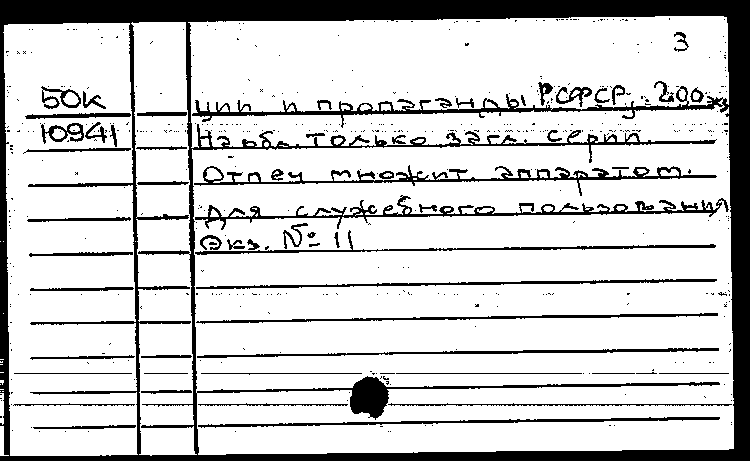 3
50к ции и пропаганды РСФСР, 200 экз
10941 На обл. только загл. серии.
Отпеч множит. аппаратом.
Для служебного пользования
Экз. № 11